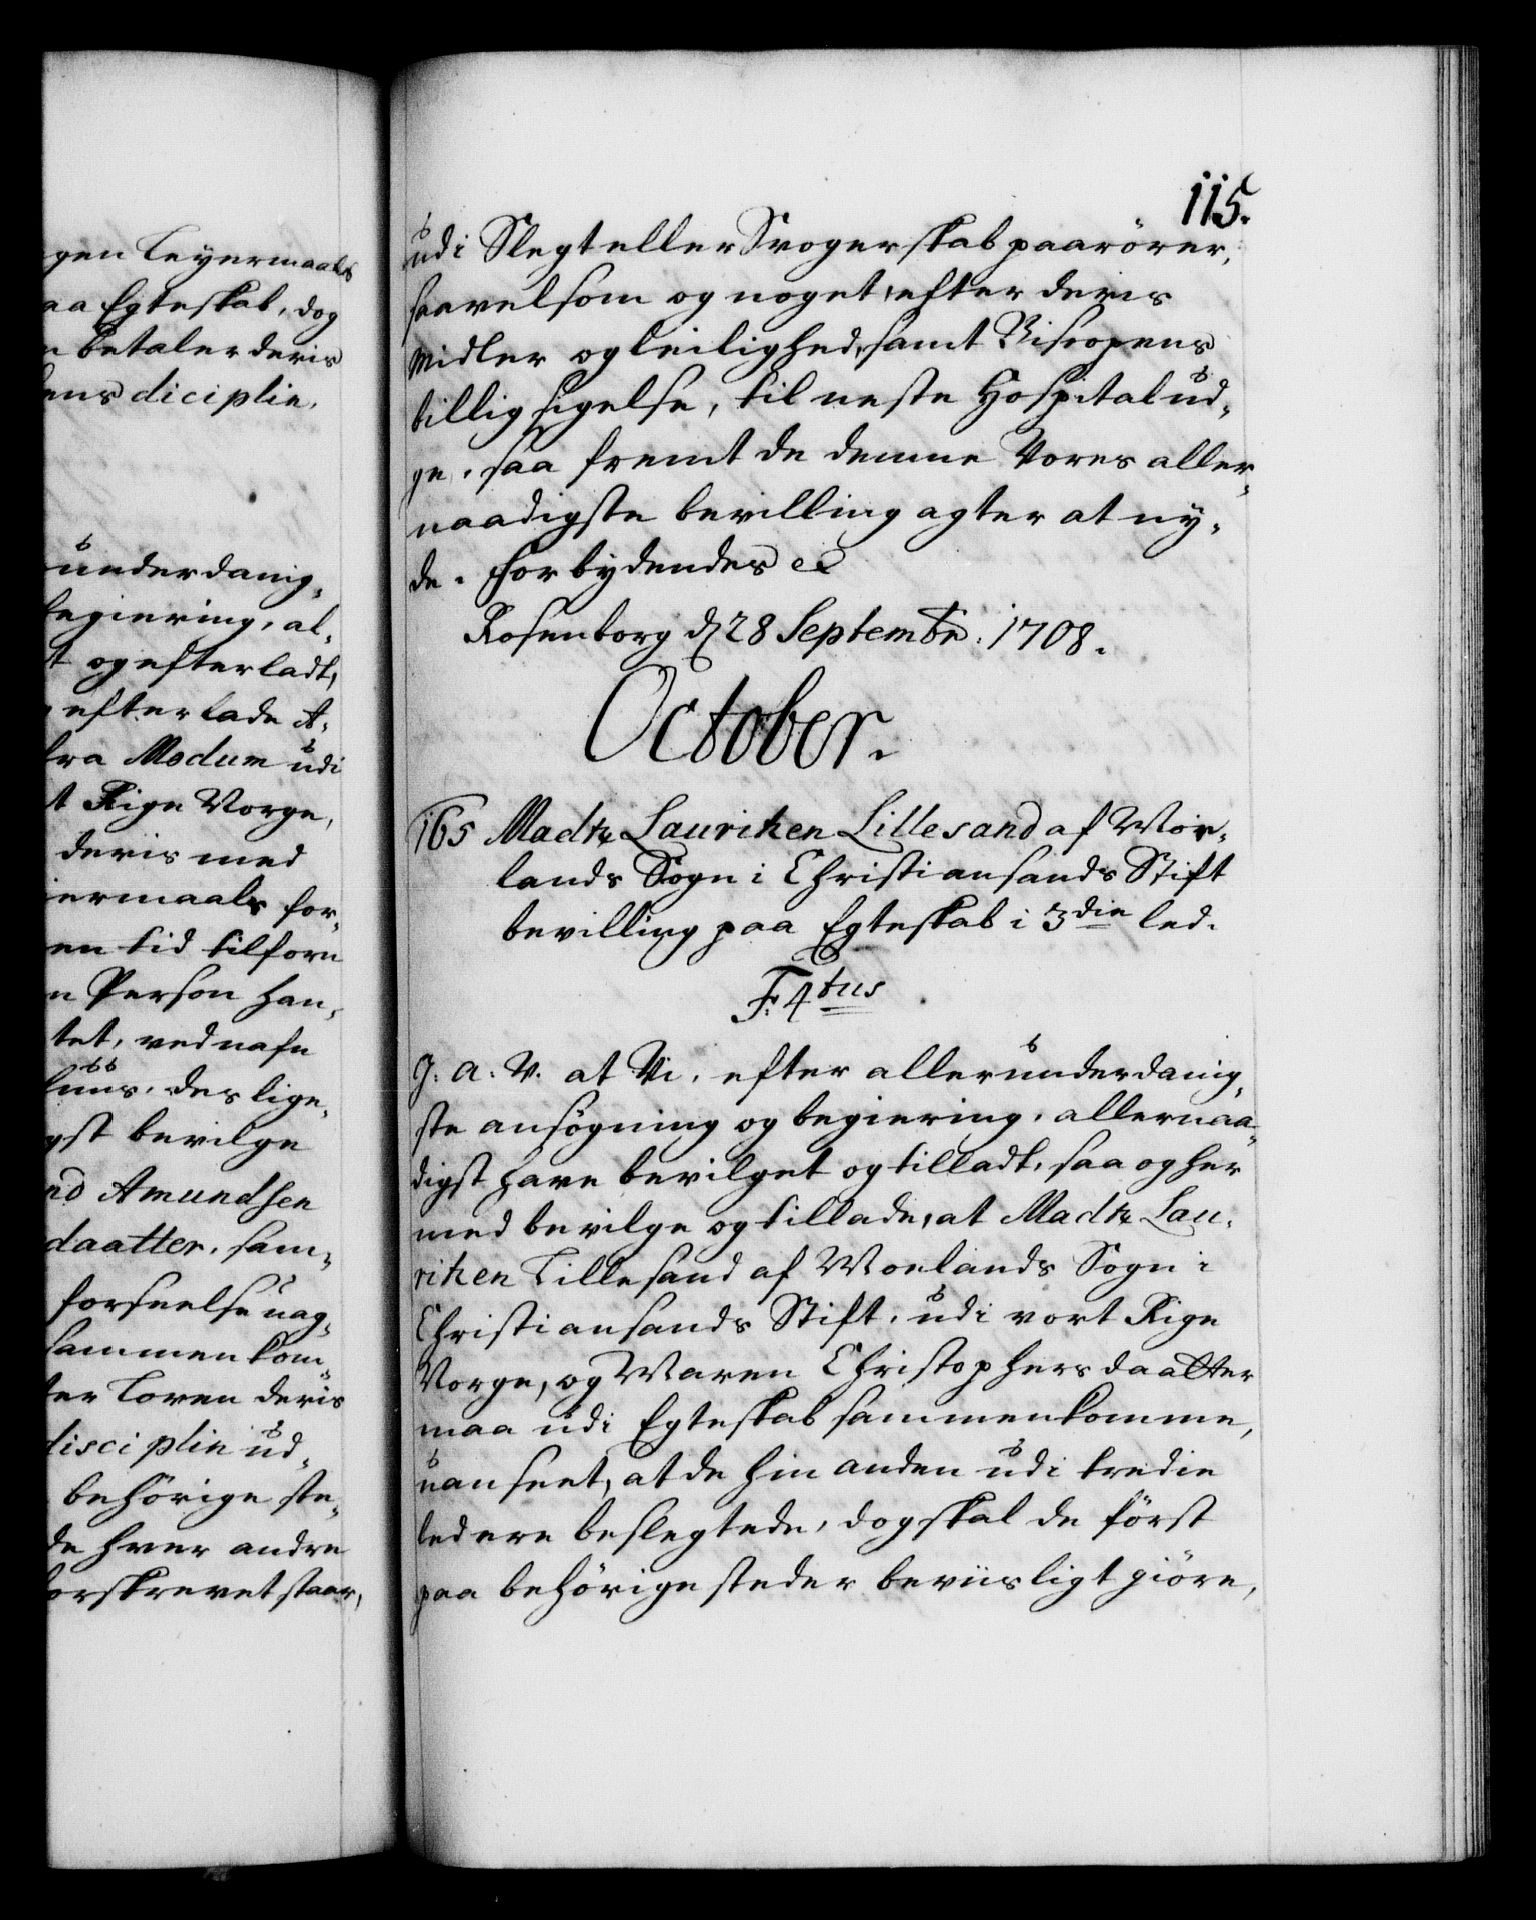 gen Leyermaals
aa Egteskab, dog
betaler deris
ens diciplin.
underdanig-
begiering, al-
t og efterladt,
efterlade A-
fra Modum udi
t Rige Norge,
deris med
iermaals for-
en tid tilforn
n Person han-
tet, ved nafn
huus, deslige-
gst bevilge
nd Amundsen
daatter, sam-
forseelse uag-
sammenkom-
ter Loven deris
disciplin ud-
behörige ste-
de hver andre
orskrevet staar,
115.
udi Slegt eller Svogerskab paarörer,
saavelsom og noget, efter deris
Midler og leilighed, samt Biscopens
billigsigelse, til neste Hospital ud-
ge, saa fremt de denne Vores aller-
naadigste bevilling agter at ny-
de. Forbydendes etc
Rosenborg d. 28 Septembr: 1708.
October.
165 Madtz Lauritzen Lillesand af Mör-
lands Sogn i Christiansands Stift
bevilling paa Egteskab i 3die led.
F: 4tus
G: A: V. at Vi, efter allerunderdanig-
ste ansögning og begiering, allernaa-
digst have bevilget og tilladt, saa og her
med bevilge og tillade, at Madtz Lau-
ritzen Lillesand af Moelands Sogn i
Christiansands Stift, udi vort Rige
Norge, og Maren Christophersdaatter
maa udi Egteskab sammenkomme,
uanseet, at de hinanden udi tredie
led ere beslegtede, dog skal de först
paa behörige steder beviisligt giöre,